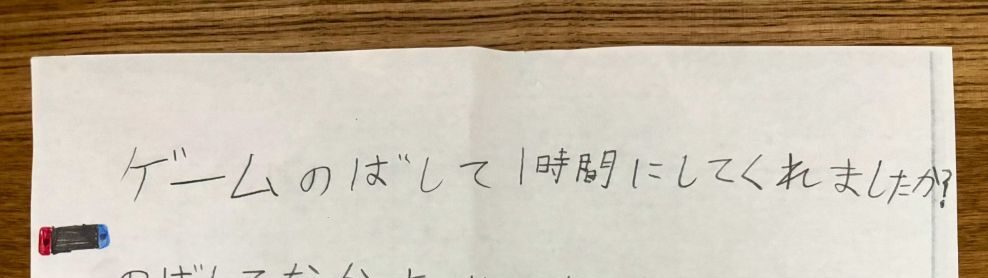 ゲームのばして1時間にしてくれましたか?